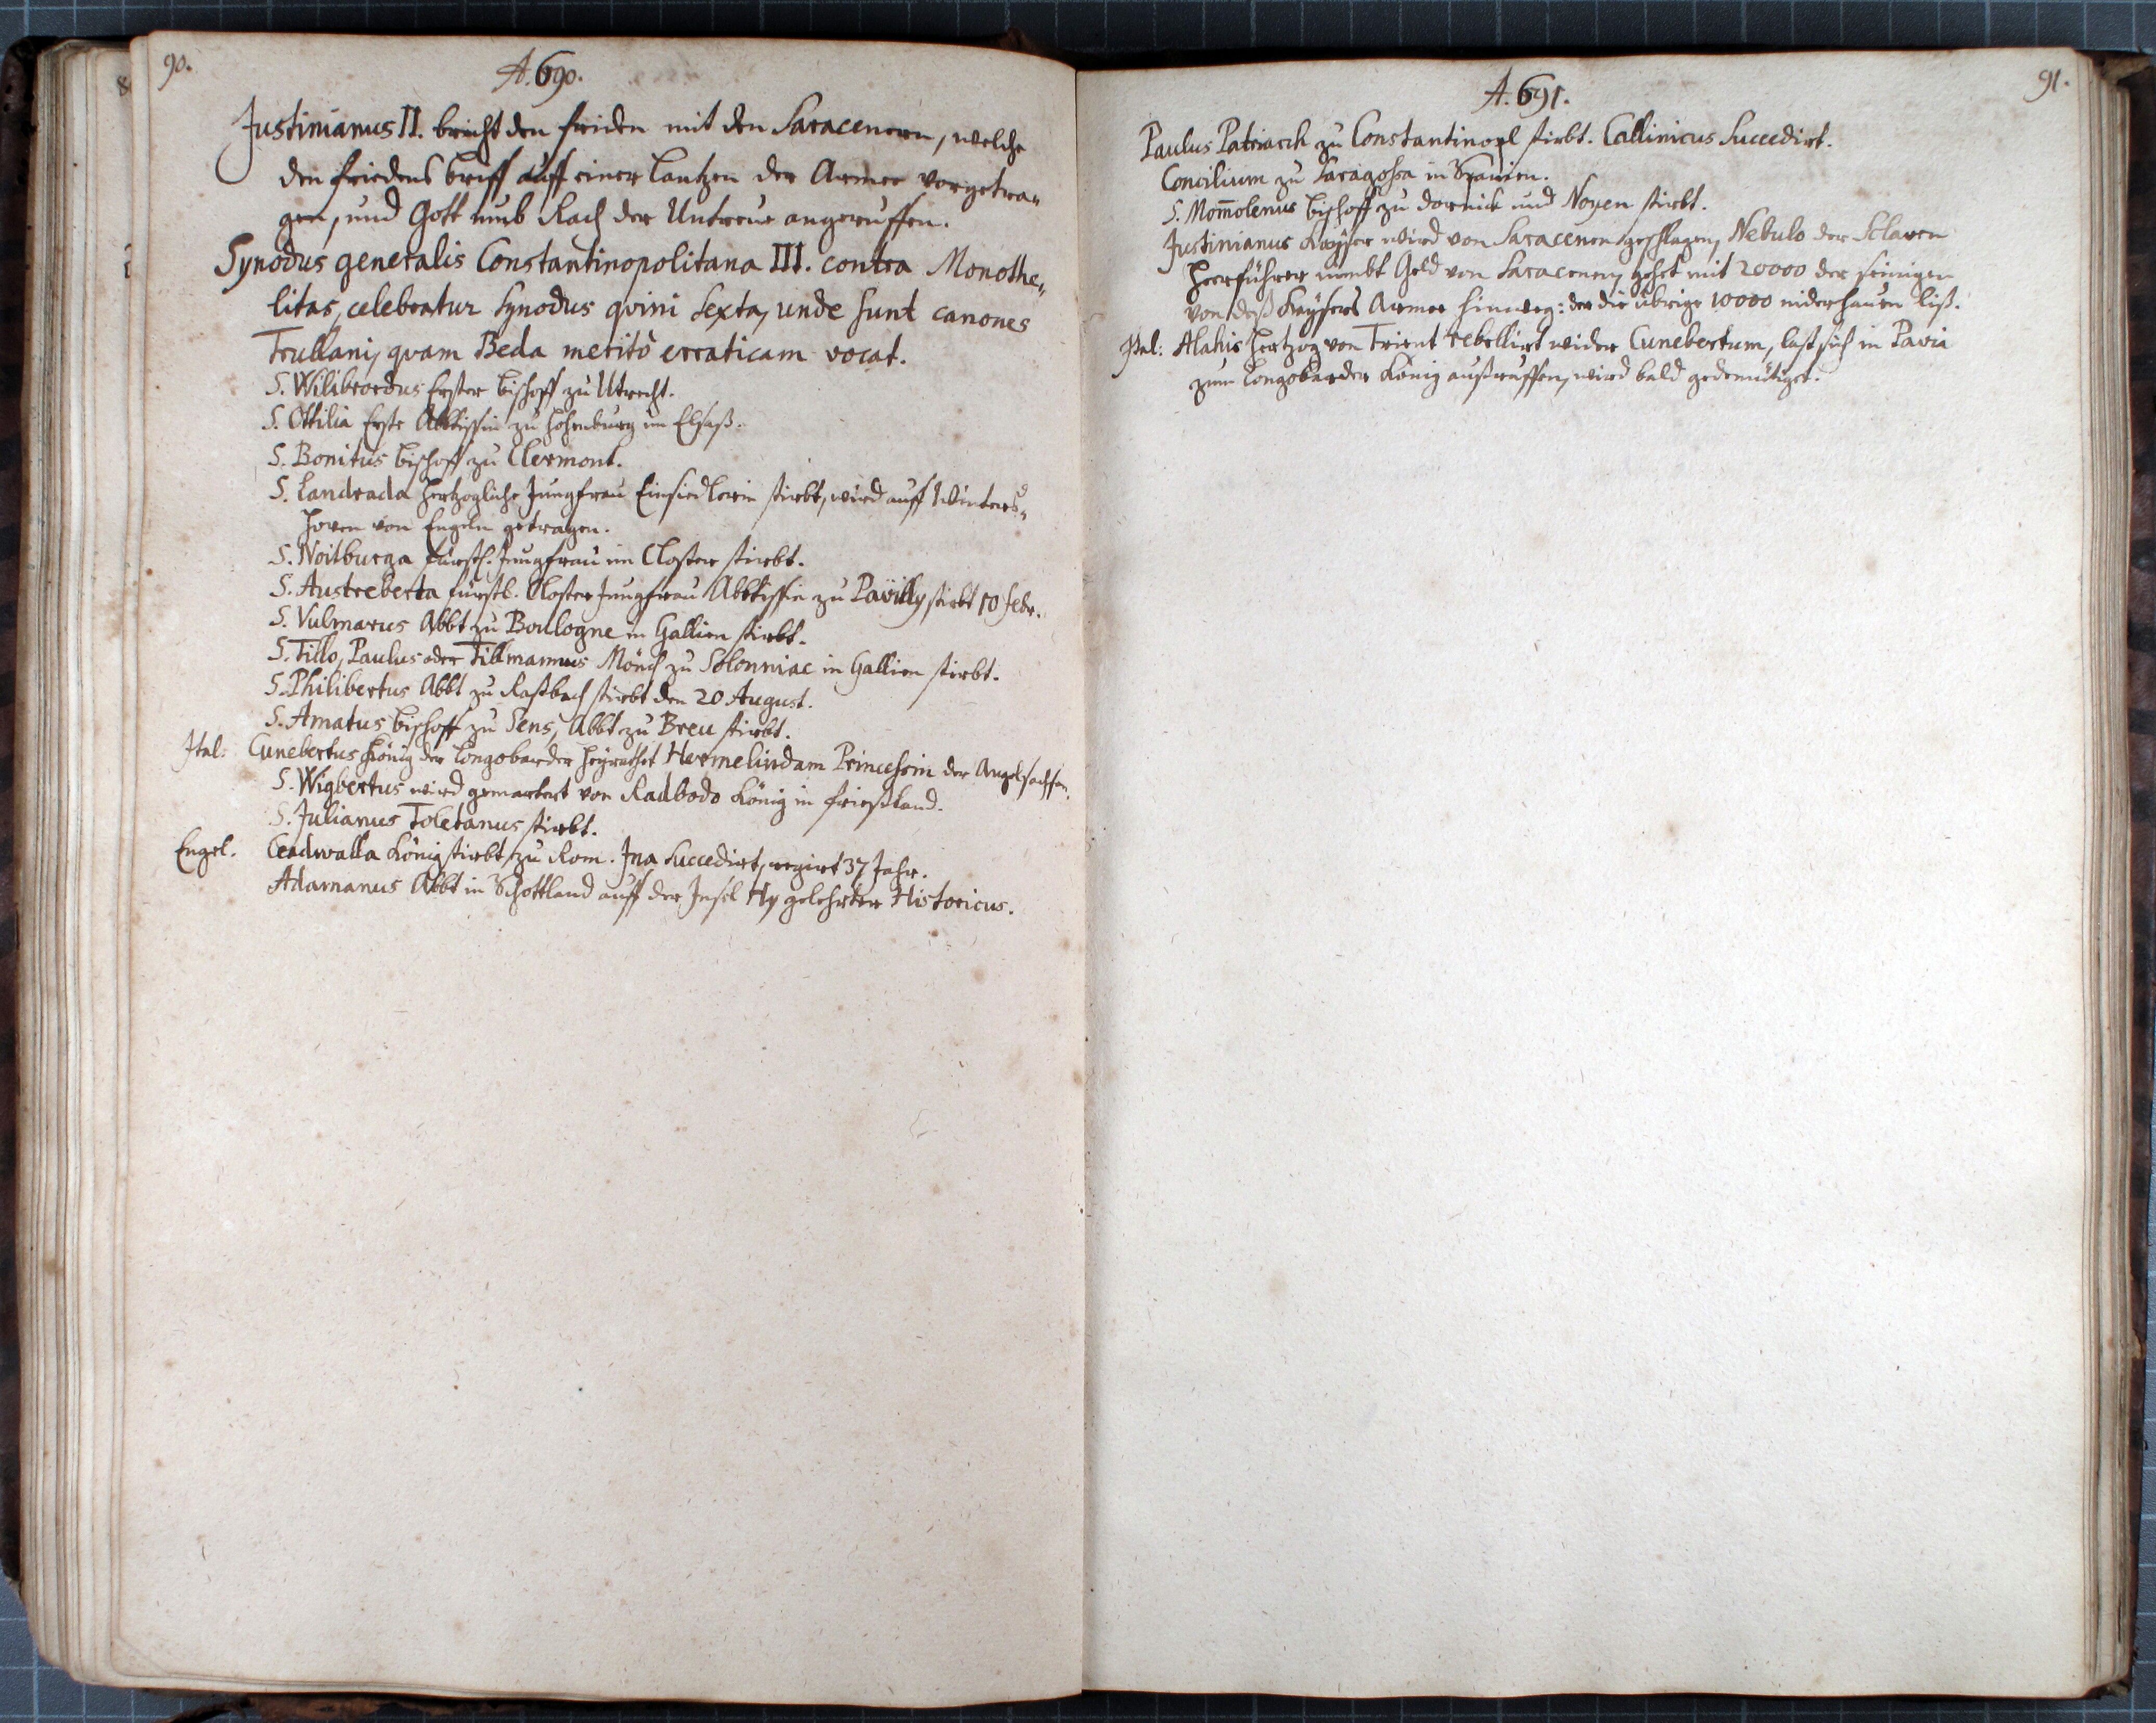 90.
A. 690.
Justinianus II. bricht den friden mit den Saracenern, welche
den friedens briff auff einer Lantzen der Armee vorgetra„
gen, und Gott umb Rach der Untreue angeruffen.
Synodus generalis Constantinopolitana III. contra Monothe„
litas, celebratur Synodus qvini Sexta, unde sunt canones
Trullani, qvam Beda meritò erraticam vocat.
S. Wilibrordus Erster bischoff zu Utrecht.
S. Ottilia Erste Abbtissin zu Hohenburg im Elsaß.
S. Bonitus bischoff zu Clermont.
S. Landrada Hertzogliche Jungfrau Einsiedlerin stirbt, wird auff Winters„
hoven von Engeln getragen.
S. Noitburga fürstl. Jungfrau im Closter stirbt.
S. Austreberta fürstl. Closter Jungfrau Abbtissin zu Pavilly stirbt 10 febr.
S. Vulmarus Abbt zu Boulogne in Gallien stirbt.
S. Tillo, Paulus oder Tillmannus Mönch zu Solonniac in Gallien stirbt.
S. Philibertus Abbt zu Raßbach stirbt den 20 August.
S. Amatus bischoff zu Sens, Abbt zu Breu stirbt.
Ital: Cunebertus König der Longobarder heyrathet Hermelindam Princessin der Angelsachsen.
S. Wigbertus wird gemartert von Radbodo König in frießland.
S. Julianus Toletanus stirbt.
Engel. Ceadwalla König stirbt zu Rom. Ina Succedirt, regirt 37 Jahr.
Adamanus Abbt in Schottland auff der Insel Hy gelehrter Historicus.
91.
A. 691.
Paulus Patriarch zu Constantinopl stirbt. Callinicus Succedirt.
Concilium zu Saragossa in Spanien.
S. Mom̄olenus bischoff zu dornick und Noyen stirbt.
Justinianus Kayser wird von Saracenen geschlagen, Nebulo der Sclaven
Heerführer nimbt Geld von Saracenen, gehet mit 20000 der seinigen
von deß Kaysers Armee hinweg: der die übrige 10000 niderhauen ließ.
Ital: Alahis Hertzog von Trient rebellirt wider Cunebertum, last sich in Pavia
zum Longobarder König außruffen, wird bald gedemütiget.